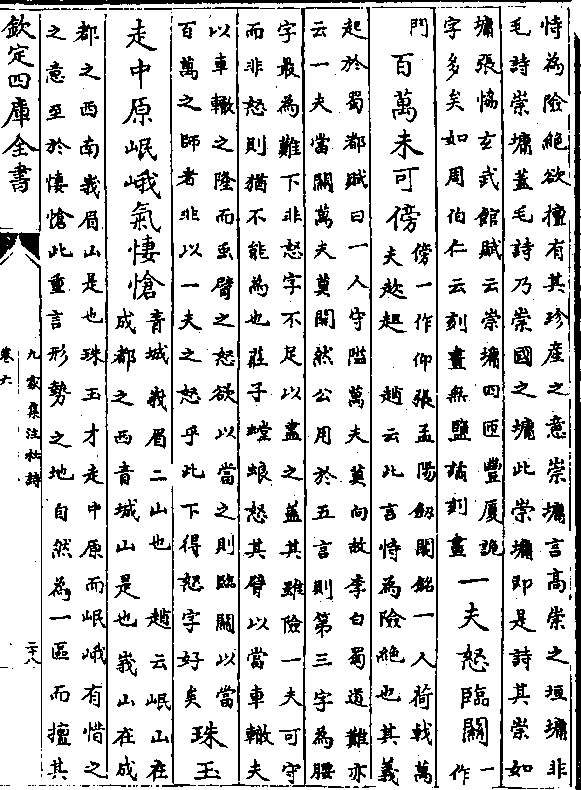 恃為險絶欲擅有其珍産之意崇墉言高崇之垣墉非
毛詩崇墉蓋毛詩乃崇國之墉此崇墉即是詩其崇如
墉張恊玄武館賦云崇墉四匝豐厦詭
字多矣如周伯仁云刻畫無鹽諸刻畫
一夫怒臨關
一
作
門
百萬未可傍
傍一作仰張孟陽劔閣銘一人荷戟萬
夫趑趄 趙云此言恃為險絶也其義
起於蜀都賦曰一人守隘萬夫莫向故李白蜀道難亦
云一夫當關萬夫莫開然公用於五言則第三字為腰
字最為難下非怒字不足以盡之蓋其雖險一夫可守
而非怒則猶不能為也莊子螳螂怒其臂以當車轍夫
以車轍之隆而虽臂之怒欲以當之則臨關以當
百萬之師者非以一夫之怒乎此下得怒字好矣
珠玉
走中原岷峨氣悽愴
青城峩眉二山也 趙云岷山在
成都之西青城山是也峩山在成
都之西南峩眉山是也珠玉才走中原而岷峨有惜之
之意至於悽愴此重言形勢之地自然為一區而擅其
欽定四庫全書
九家集注杜詩
卷六
二十八